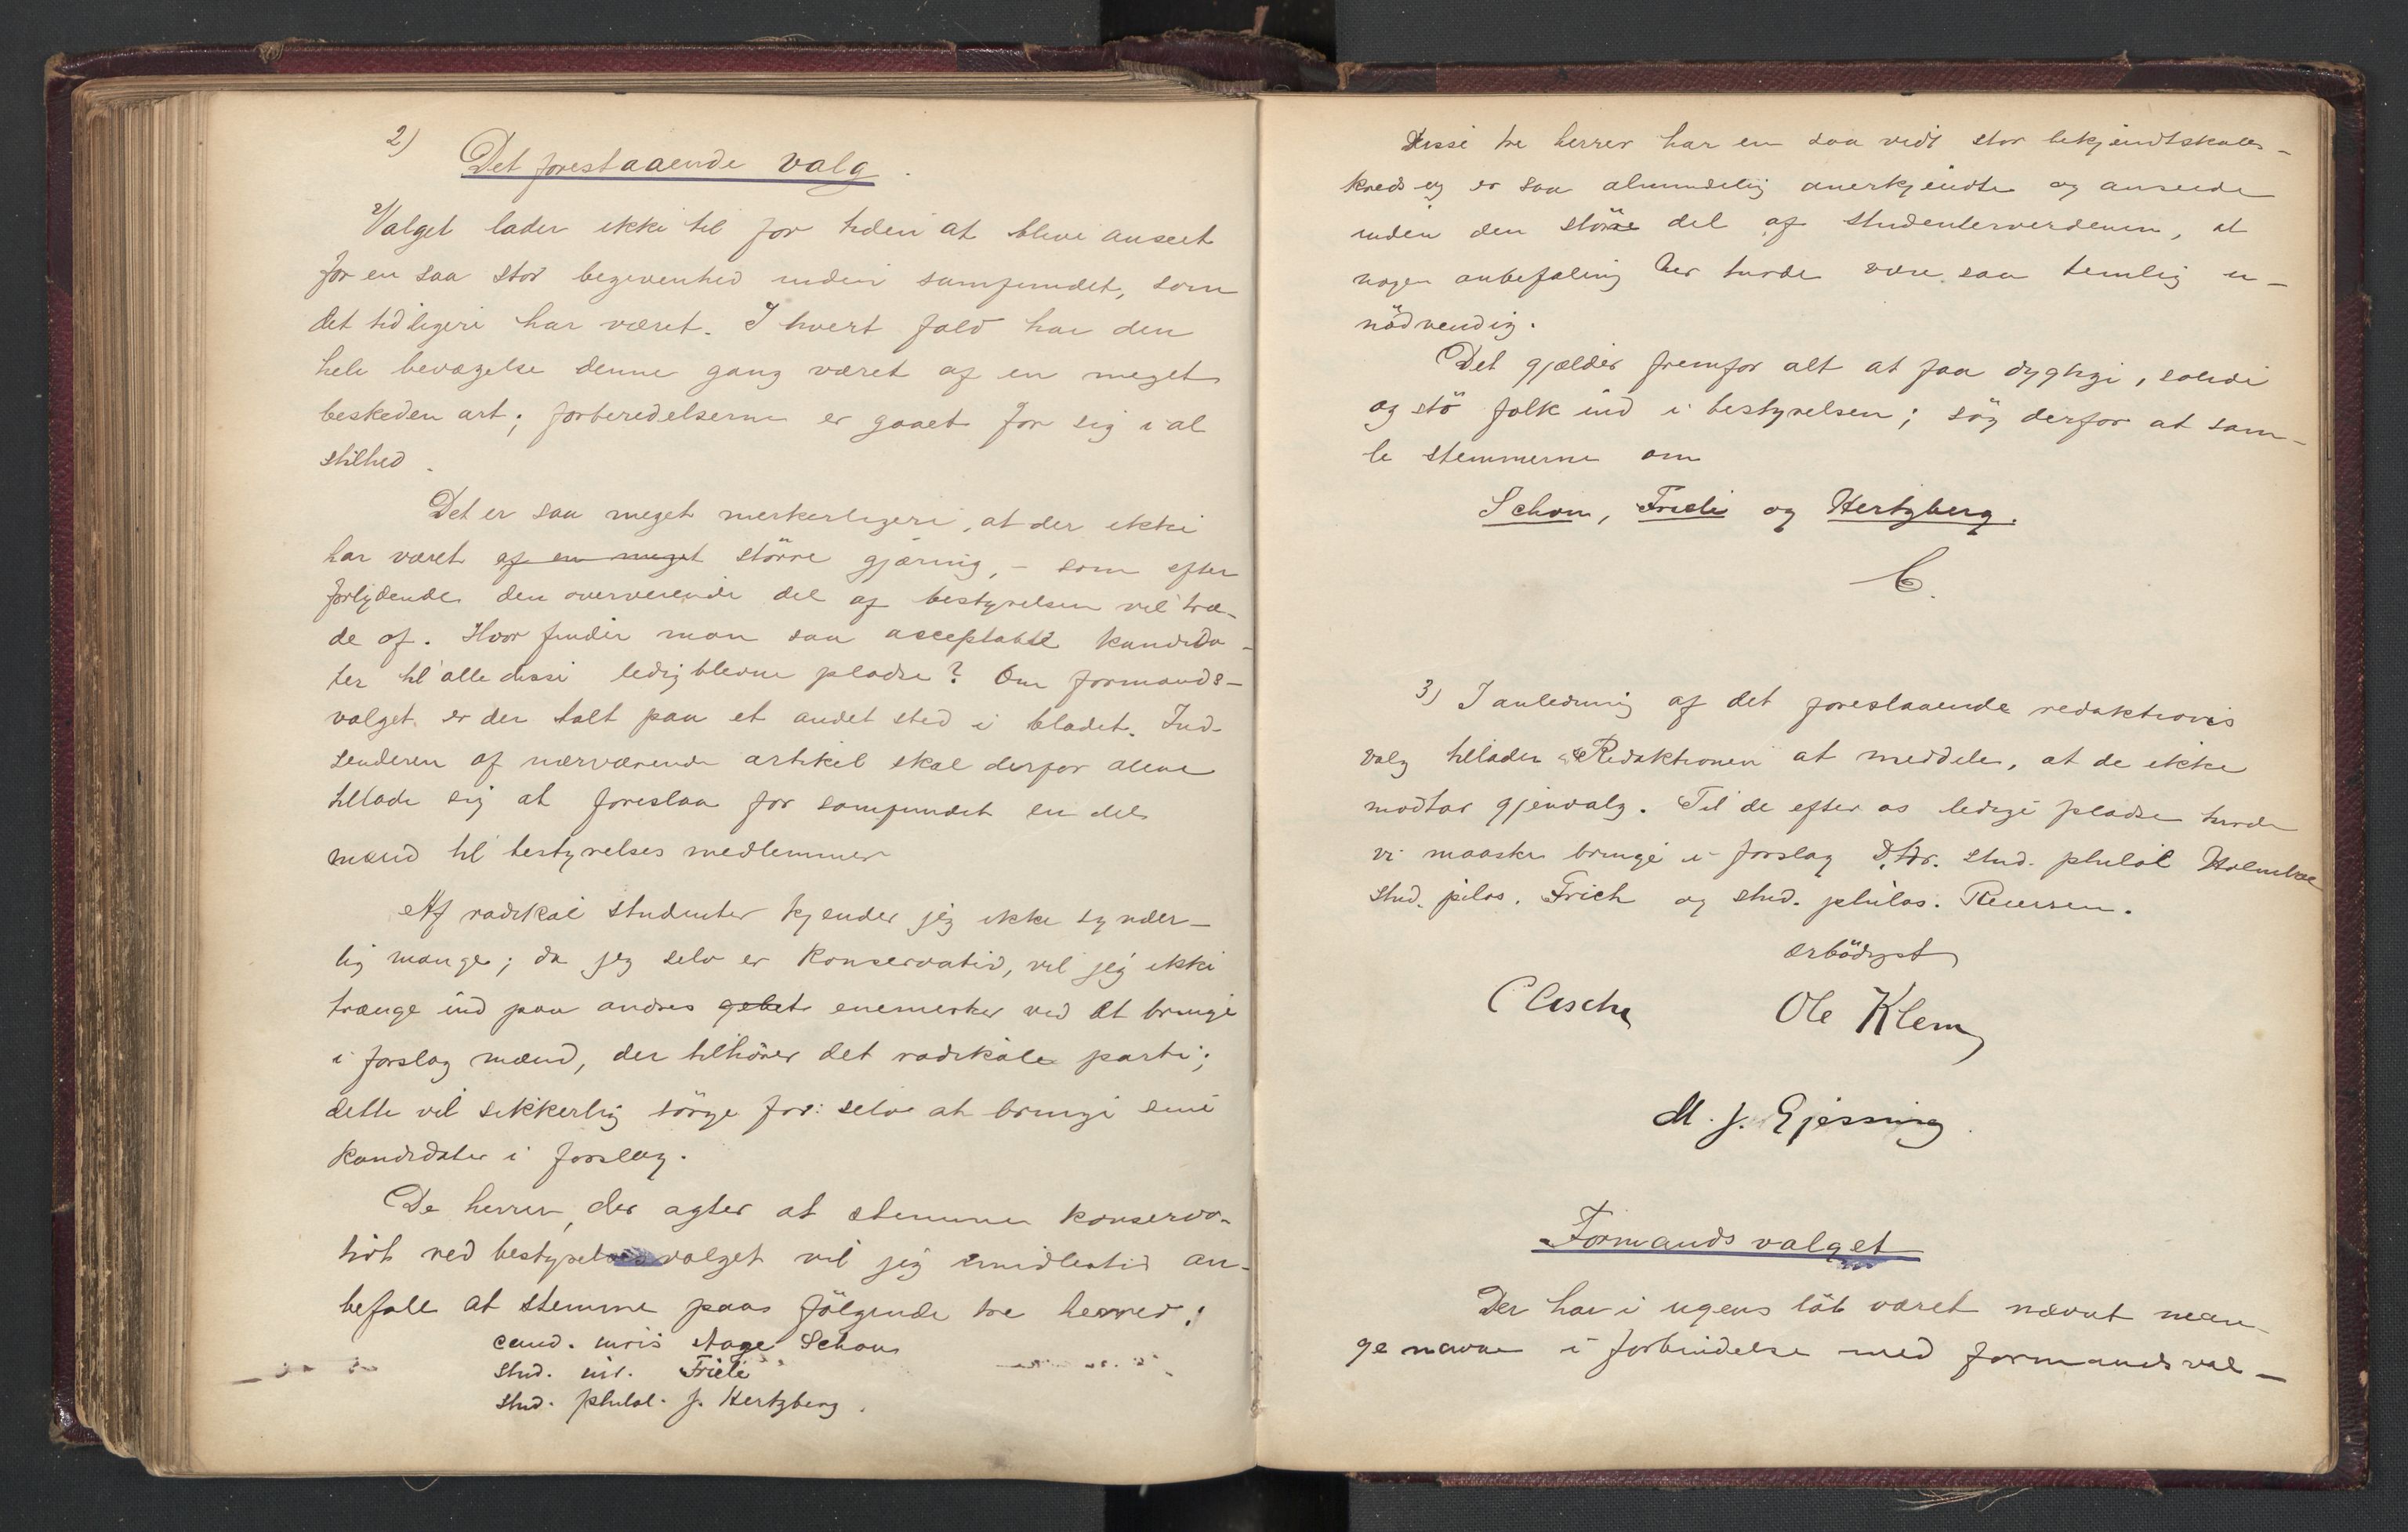 2)
Det forestaaende valg.
Valget lader ikke til for tiden at blive anseet
for en saa stor begivenhed inden samfundet, som
det tidligere har været. I hvert fald har den
hele bevægelse denne gang været af en meget
beskeden art; forberedelserne er gaaet for sig i al
stilhed.
Det er saa meget merkeligere, at der ikke
har været af en meget større gjæring, – som efter
forlydende den overveiende del af bestyrelsen vil træ-
de af. Hvor finder man saa acceptable kandida-
ter til alle disse ledigblevne pladse? Om formands-
valget er der talt paa et andet sted i bladet. Ind-
senderen af nærværende artikel skal derfor alene
tillade sig at foreslaa for samfundet en del
mænd til bestyrelses medlemmer
Af radikale studenter kjender jeg ikke synder-
lig mange; da jeg selv er konservativ, vil jeg ikke
trænge ind paa andres gebet enemerker ved at bringe
i forslag mænd, der tilhører det radikale parti;
dette vil sikkerlig sörge for selv at bringe sine
kandidater i forslag.
De herrer, der agter at stemme konserva-
tivt ved bestyrelsesvalget vil jeg imidlertid an-
befale at stemme paa fölgende tre herrer:
cand. juris Aage Schou
stud. jur. Friele
stud. philol. J. Hertzberg.
Disse tre herrer har en saa vidt stor bekjendtskabs-
kreds og er saa almindelig anerkjendte og anseede
inden den större del af studenterverdenen, at
nogen anbefaling her turde være saa temlig u-
nödvendig.
Det gjælder fremfor alt at faa dygtige, solide
og stö folk ind i bestyrelsen; sög derfor at sam-
le stemmerne om
Schou, Friele og Hertzberg.
C.
3) I anledning af det forestaaende redaktions
valg tillader Redaktionen at meddele, at de ikke
modtar gjenvalg. Til de efter os ledige pladse turde
vi maaske bringe i forslag D'Hr. stud. philol Holmboe
stud. pilos. Frich og stud. philos. Reusen.
ærbödigst
C Casche Ole Klem
M. J. Gjessing.
Formandsvalget
Der har i ugens löb været nævnt man-
ge navne i forbindelse med formandsval-